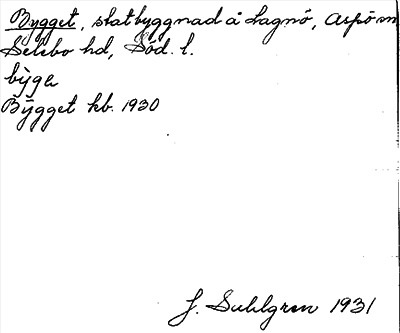 Bygget, slatbyggnad å Lagnö, Aspö sn
Selebo hd, Söd. l.
bỳgɛ
Bygget kb. 1930
J. Sahlgren 1931